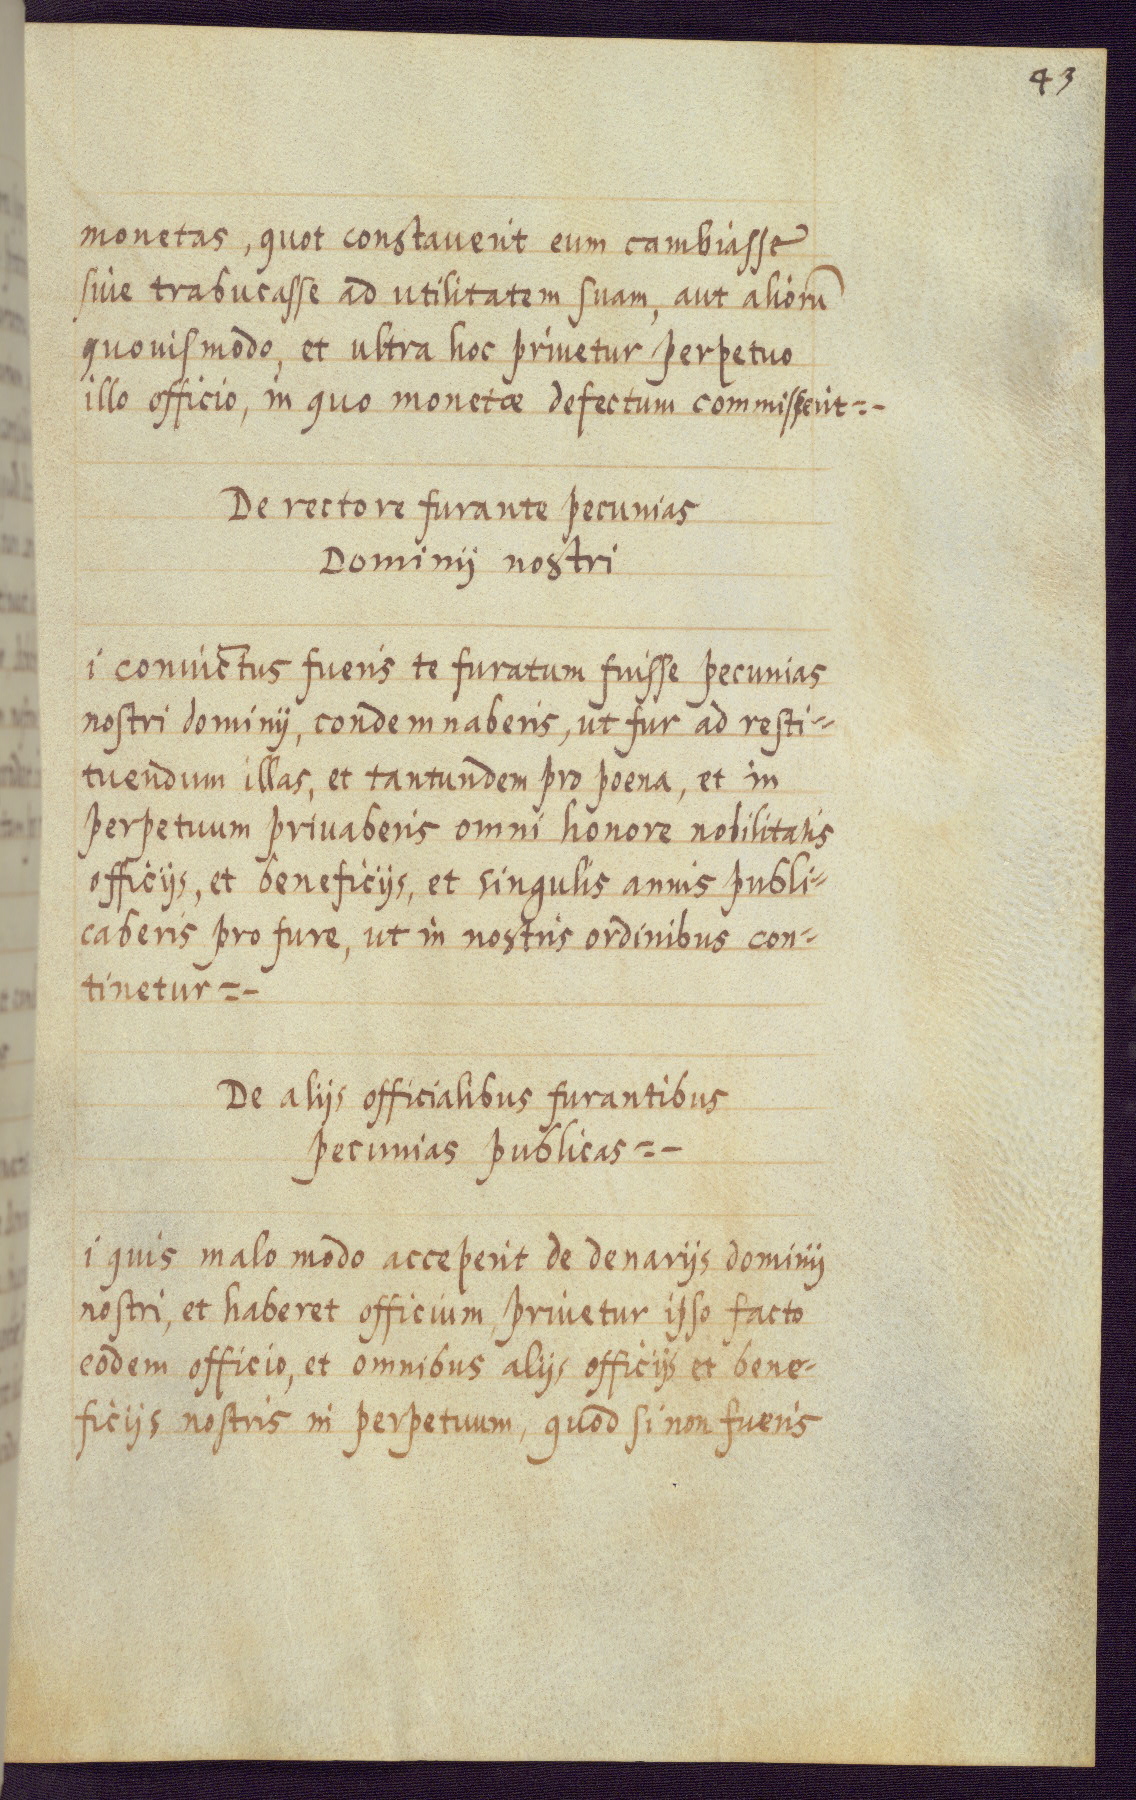 43
monetas, quot constauerit eum cambiasse
siue trabucasse ad utilitatem suam, aut aliorũ
quouismodo, et ultra hoc priuetur perpetuo
illo officio, in quo monetæ defectum commisserit=-
De rectore furante pecunias
Dominij nostri
i conuictus fueris te furatum fuisse pecunias
nostri dominij, condemnaberis, ut fur ad resti=
tuendum illas, et tantundem pro poena, et in
perpetuum priuaberis omni honore nobilitatis
officijs, et beneficijs, et singulis annis publi=
caberis pro fure, ut in nostris ordinibus con=
tinetur=-
De alijs officialibus furantibus
pecunias publicas=-
i quis malo modo acceperit de denarijs dominij
nostri, et haberet officium, priuetur ipso facto
eodem officio, et omnibus alijs officijs et bene=
ficijs nostris in perpetuum, quod si non fueris